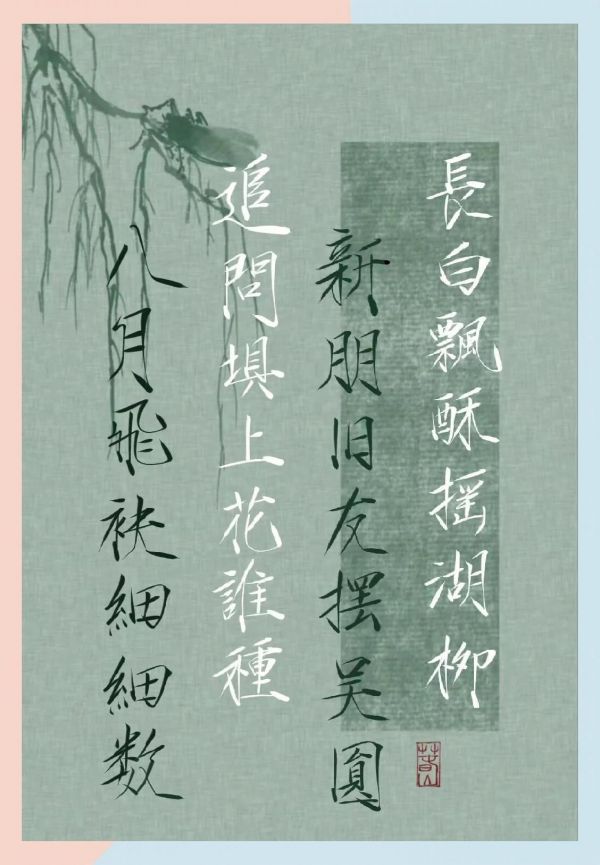 長白飄酥摇湖柳
新朋旧友摆吴圓
追問埧上花誰種
八月飛袂細細数